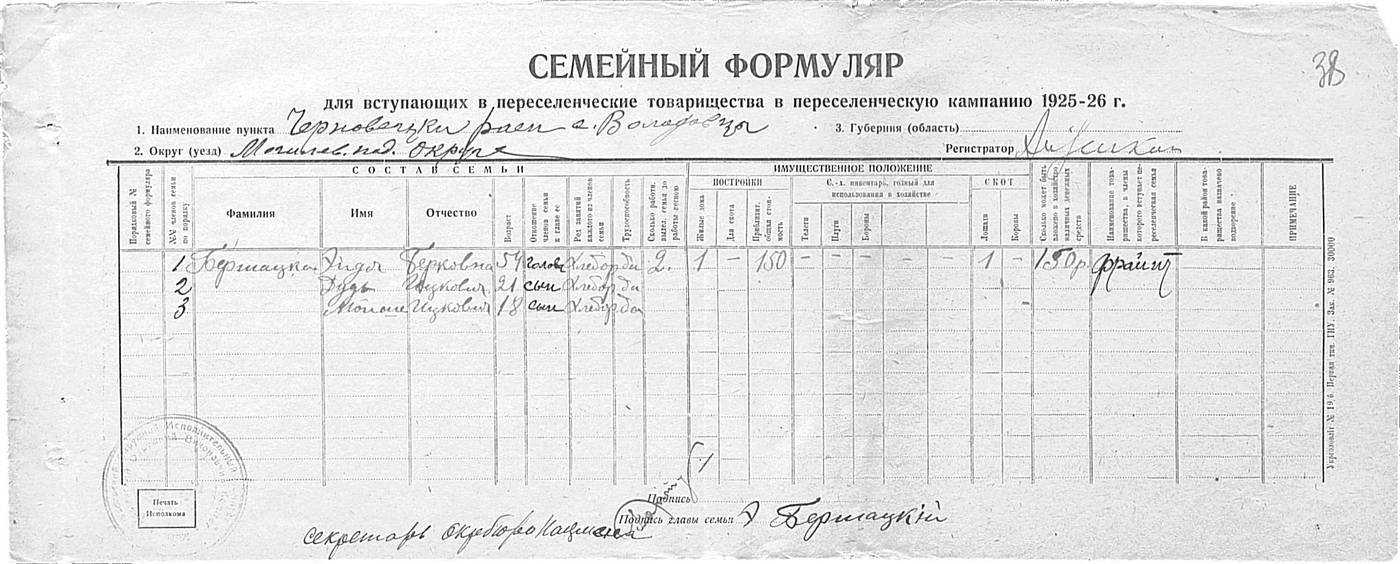 СЕМЕЙНЫЙ ФОРМУЛЯР
38
для вступающих в переселенческие товарищества в переселенческую кампанию 1925-26 г.
1. Наименование пункта Черновецки раен с. Володовцы
3. Губерния (область)
2. Округ (уезд) Могилев. под. округе
Регистратор
СОСТАВ СЕМЬИ
ИМУЩЕСТВЕННОЕ ПОЛОЖЕНИЕ
ПОСТРОЙКИ
С.-х. инвентарь, годный для использования в хозяйстве
СКОТ
Порядковый № семейного формуляра
№№ членов семьи по порядку
Фамилия
Имя
Отчество
Возраст
Отношение членов семьи к главе ее
Род занятий каждого из членов семьи
Трудоспособность
Сколько работн. выдел. семья до работы весною
Жилые дома
Для скота
Приблизит. общая стоимость
Телеги
Плуги
Бороны
Лошади
Коровы
Сколько может быть вложено в хозяйство наличных денежных средств
Наименование товарищества, в члены которого вступает переселенческая семья
В какой район товарищества назначено водворение
ПРИМЕЧАНИЕ
1 Бершацкая Эйдя Берковна 54 голова Хлебороб да 2. 1 – 150 – – – – – – 1 – 150 р. Фрайнт
2 Дудь Ицкович 21 сын Хлебор. да
3 Мойше Ицкович 18 сын Хлебор. да
Управлоліт № 19,6. Первая тип. ГИУ. Зак. № 963. 30000
Печать Исполкома
Подпись
Подпись главы семьи Э Бершацкій
секретарь окрбюро Нацмен